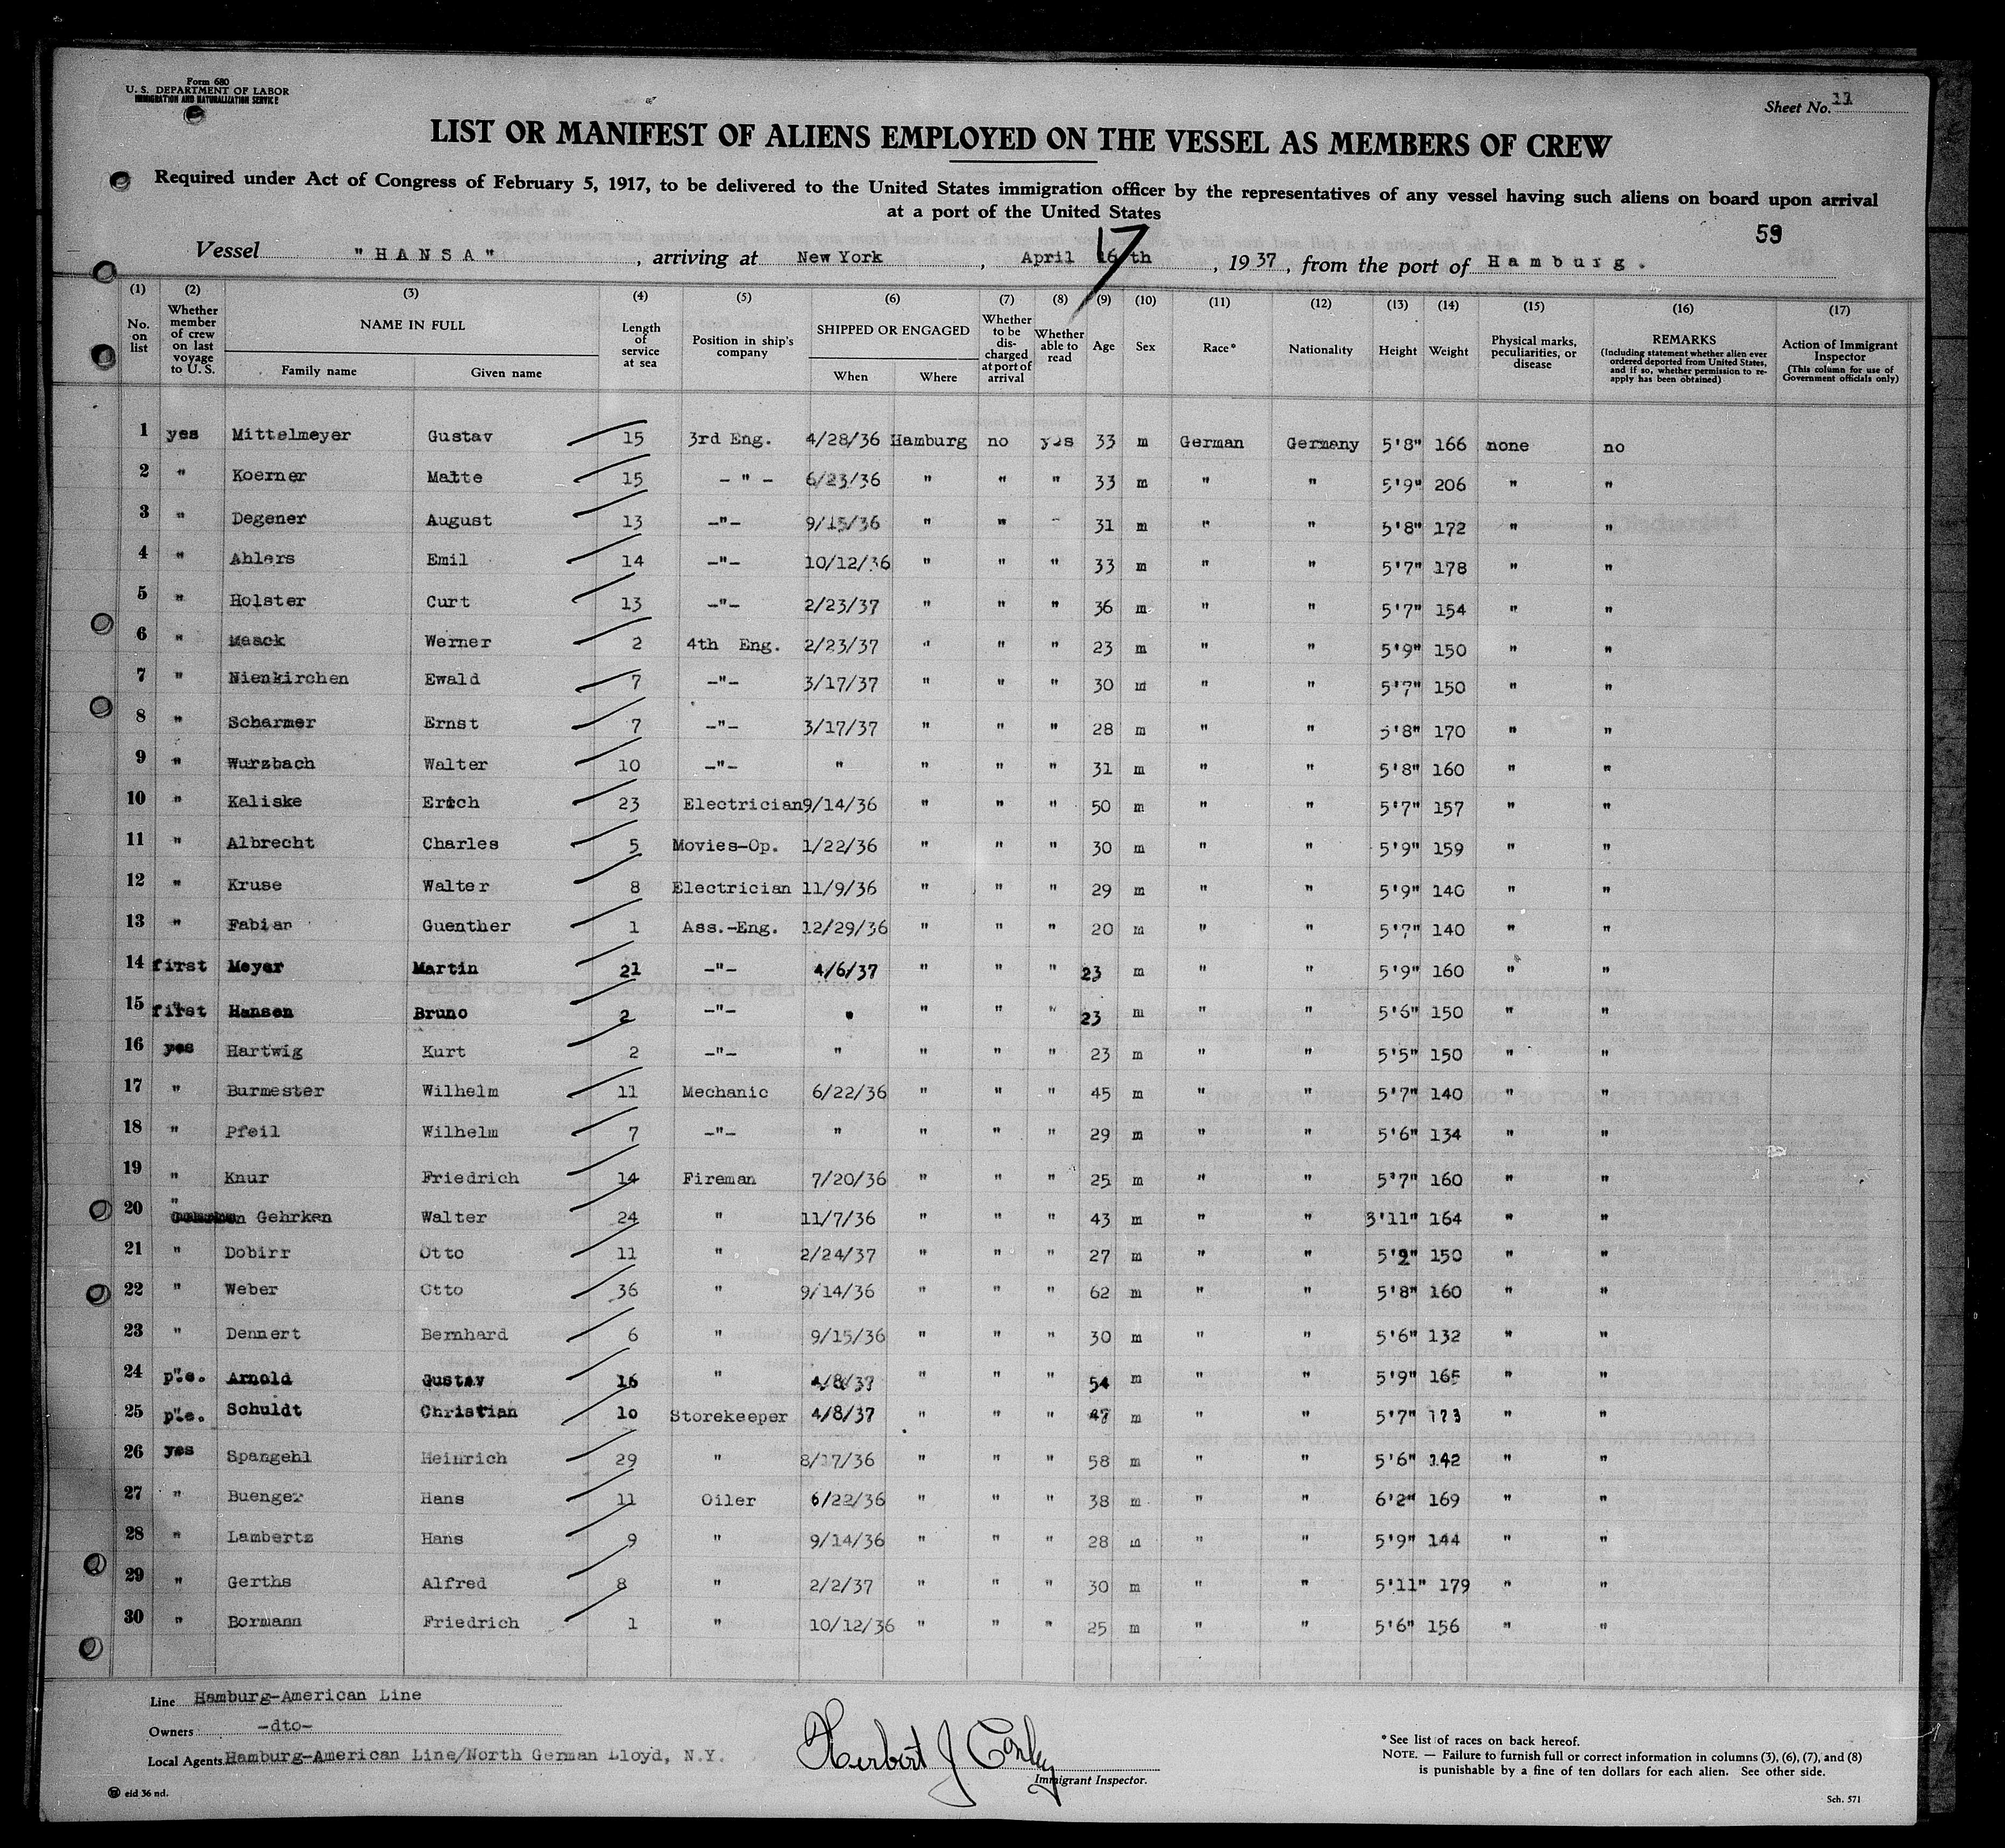 Form 680
U. S. DEPARTMENT OF LABOR
IMMIGRATION AND NATURALIZATION SERVICE
Sheet No. 11
LIST OR MANIFEST OF ALIENS EMPLOYED ON THE VESSEL AS MEMBERS OF CREW
Required under Act of Congress of February 5, 1917, to be delivered to the United States immigration officer by the representatives of any vessel having such aliens on board upon arrival
at a port of the United States
59
17
Vessel "HANSA", arriving at New York, April 16th, 1937, from the port of Hamburg.
(1) (2) (3) (4) (5) (6) (7) (8) (9) (10) (11) (12) (13) (14) (15) (16) (17)
No. on list
Whether member of crew on last voyage to U. S.
NAME IN FULL
Family name Given name
Length of service at sea
Position in ship's company
SHIPPED OR ENGAGED
When Where
Whether to be discharged at port of arrival
Whether able to read
Age
Sex
Race*
Nationality
Height
Weight
Physical marks, peculiarities, or disease
REMARKS
(Including statement whether alien ever ordered deported from United States, and if so, whether permission to reapply has been obtained)
Action of Immigrant Inspector
(This column for use of Government officials only)
1 yes Mittelmeyer Gustav 15 3rd Eng. 4/28/36 Hamburg no yes 33 m German Germany 5'8" 166 none no
2 " Koerner Matte 15 -"- 6/23/36 " " " 33 m " " 5'9" 206 " "
3 " Degener August 13 -"- 9/15/36 " " " 31 m " " 5'8" 172 " "
4 " Ahlers Emil 14 -"- 10/12/36 " " " 33 m " " 5'7" 178 " "
5 " Holster Curt 13 -"- 2/23/37 " " " 36 m " " 5'7" 154 " "
6 " Maack Werner 2 4th Eng. 2/23/37 " " " 23 m " " 5'9" 150 " "
7 " Nienkirchen Ewald 7 -"- 3/17/37 " " " 30 m " " 5'7" 150 " "
8 " Scharmer Ernst 7 -"- 3/17/37 " " " 28 m " " 5'8" 170 " "
9 " Wurzbach Walter 10 -"- " " " " 31 m " " 5'8" 160 " "
10 " Kaliske Erich 23 Electrician 9/14/36 " " " 50 m " " 5'7" 157 " "
11 " Albrecht Charles 5 Movies-Op. 1/22/36 " " " 30 m " " 5'9" 159 " "
12 " Kruse Walter 8 Electrician 11/9/36 " " " 29 m " " 5'9" 140 " "
13 " Fabian Guenther 1 Ass.-Eng. 12/29/36 " " " 20 m " " 5'7" 140 " "
14 first Meyer Martin 21 -"- 4/6/37 " " " 23 m " " 5'9" 160 " "
15 first Hansen Bruno 2 -"- " " " " 23 m " " 5'6" 150 " "
16 yes Hartwig Kurt 2 -"- " " " " 23 m " " 5'5" 150 " "
17 " Burmester Wilhelm 11 Mechanic 6/22/36 " " " 45 m " " 5'7" 140 " "
18 " Pfeil Wilhelm 7 -"- " " " " 29 m " " 5'6" 134 " "
19 " Knur Friedrich 14 Fireman 7/20/36 " " " 25 m " " 5'7" 160 " "
20 " Gehrken Walter 24 " 11/7/36 " " " 43 m " " 3'11" 164 " "
21 " Dobirr Otto 11 " 2/24/37 " " " 27 m " " 5'2" 150 " "
22 " Weber Otto 36 " 9/14/36 " " " 62 m " " 5'8" 160 " "
23 " Dennert Bernhard 6 " 9/15/36 " " " 30 m " " 5'6" 132 " "
24 p.e. Arnold Gustav 16 " 4/8/37 " " " 54 m " " 5'9" 165 " "
25 p.e. Schuldt Christian 10 Storekeeper 4/8/37 " " " 47 m " " 5'7" 173 " "
26 yes Spangehl Heinrich 29 " 8/17/36 " " " 58 m " " 5'6" 142 " "
27 " Buenger Hans 11 Oiler 6/22/36 " " " 38 m " " 6'2" 169 " "
28 " Lambertz Hans 9 " 9/14/36 " " " 28 m " " 5'9" 144 " "
29 " Gerths Alfred 8 " 2/2/37 " " " 30 m " " 5'11" 179 " "
30 " Bormann Friedrich 1 " 10/12/36 " " " 25 m " " 5'6" 156 " "
Line Hamburg-American Line
Owners -dto-
Local Agents Hamburg-American Line/North German Lloyd, N.Y.
Herbert J Conley
Immigrant Inspector.
* See list of races on back hereof.
NOTE. — Failure to furnish full or correct information in columns (3), (6), (7), and (8)
is punishable by a fine of ten dollars for each alien. See other side.
eid 36 nd.
Sch. 571